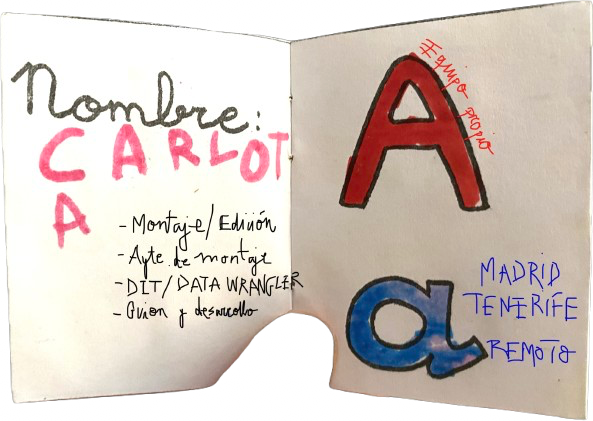 Nombre:
CARLOT
A
- Montaje/Edición
- Ayte de montaje
- DIT/DATA WRANGLER
- Guion y desarrollo
Equipo propio
A
a
MADRID
TENERIFE
REMOTO